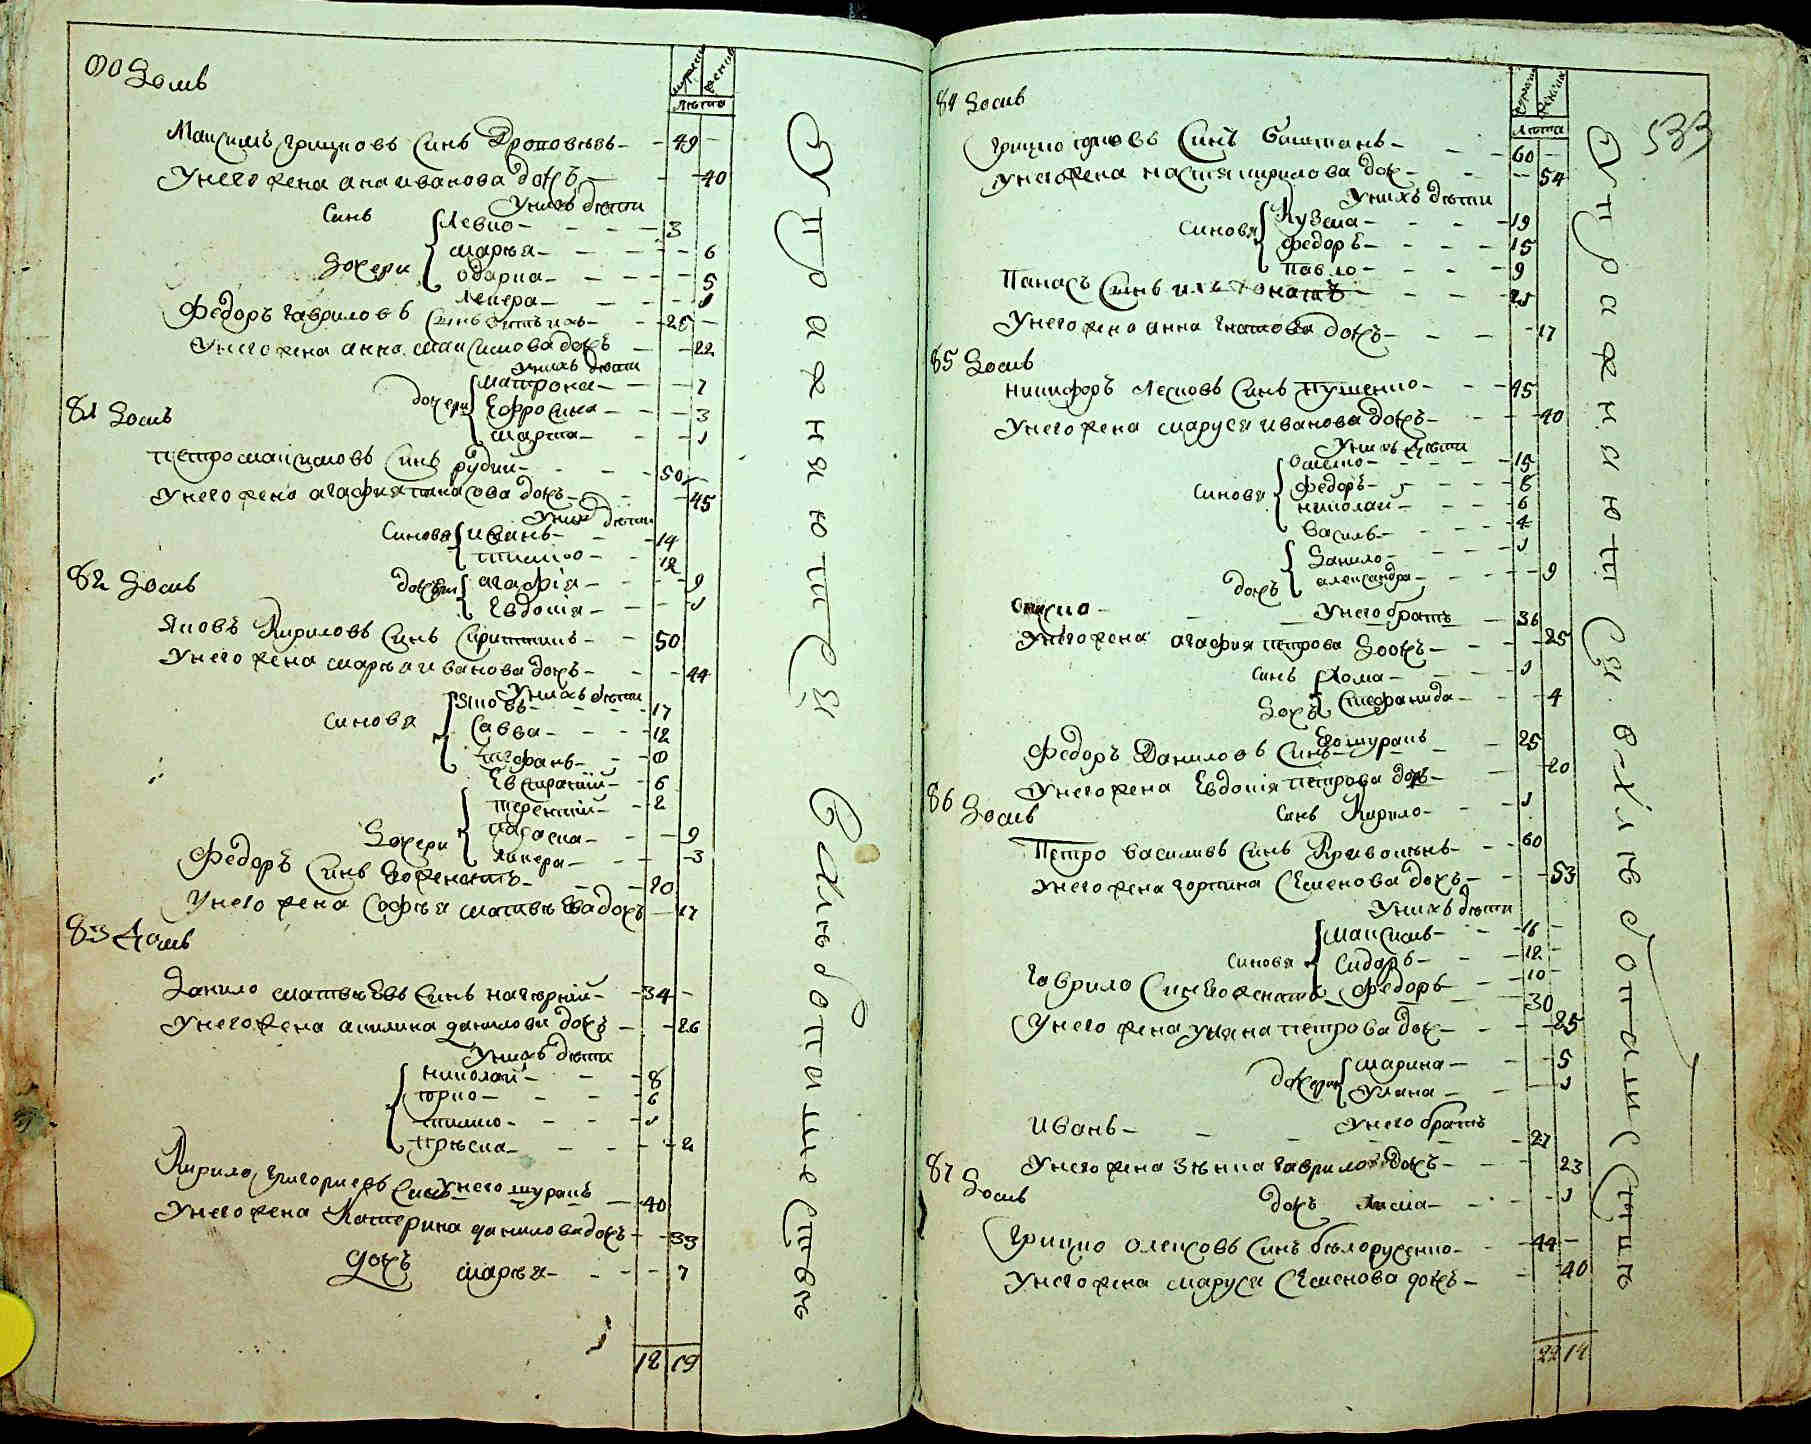 80 Домъ
мужеска женска
лѣта
Максимъ Грицковъ синъ 49
У него жена Ана Иванова дочъ 40
У нихъ дѣти
Синъ Левко 3
Дочери Маря 6
Одарка 5
Фёдоръ Гавриловъ синъ 25
У него жена Анна Максимова дочъ 22
У нихъ дѣти
дочери Матрона 7
Ефросина 3
Марѳа 1
81 Домъ
Петро Максимовъ синъ Рудий 50
У него жена Агафия Панасова дочъ 45
У нихъ дѣти
Синовя Иванъ 14
Тимко 12
дочери Агафія 9
Евдокія 1
82 Домъ
Яковъ Кириловъ синъ 50
У него жена Маря Иванова дочъ 44
У нихъ дѣти
Синовя Яковъ 17
Савва 12
Стефанъ 8
Евстратий 6
Терентий 2
Дочери Параска 9
3
Федоръ синъ 20
У него жена Софѣя Матвѣева дочъ 17
83 Домъ
Данило Матвѣевъ синъ Нагорний 34
У него жена Акилина Данилова дочъ 26
У нихъ дѣти
Николай 8
Юрко 6
Тимко 1
Прѣска 2
Кирило Григориевъ синъ У него шуринъ 40
У него жена Катерина Данилова дочъ 33
дочъ Маря 7
12 19
Упражняются в хлѣбопашествѣ
533
84 Домъ
мужеска женска
лѣта
Грицко синъ 60
У него жена Настя Кирилова доч 54
У нихъ дѣти
Синовя Кузма 19
Федоръ 15
Павло 9
Панасъ синъ ихъ 25
У него жена Анна Игнатова дочъ 17
85 Домъ
Никифоръ Лесковъ синъ 45
У него жена Маруся Иванова дочъ 40
У нихъ дѣти
Синовя 15
Федоръ 8
Николай 6
Василь 4
Данило 1
дочъ Александра 9
У него братъ 36
У него жена Агафия Петрова доочъ 25
Синъ Хома 1
Дочъ Стефанида 4
Федоръ Даниловъ синъ 25
У него жена Евдокія Петрова дочъ 20
Синъ Кирило 1
86 Домъ
Петро Василивъ синъ 60
У него жена Горпина Семенова дочъ 53
У нихъ дѣти
Синовя Максимъ 16
Сидоръ 12
Федоръ 10
Гаврило синъ 30
У него жена Уляна Петрова доч 25
дочери Марина 5
Уляна 1
Иванъ У него братъ 27
У него жена Зѣнка Гаврилова дочъ 23
дочъ 1
87 Домъ
Грицко Олексовъ синъ 44
У него жена Маруся Семенова дочъ 40
22 14
Упражняются в хлѣбопашествѣ